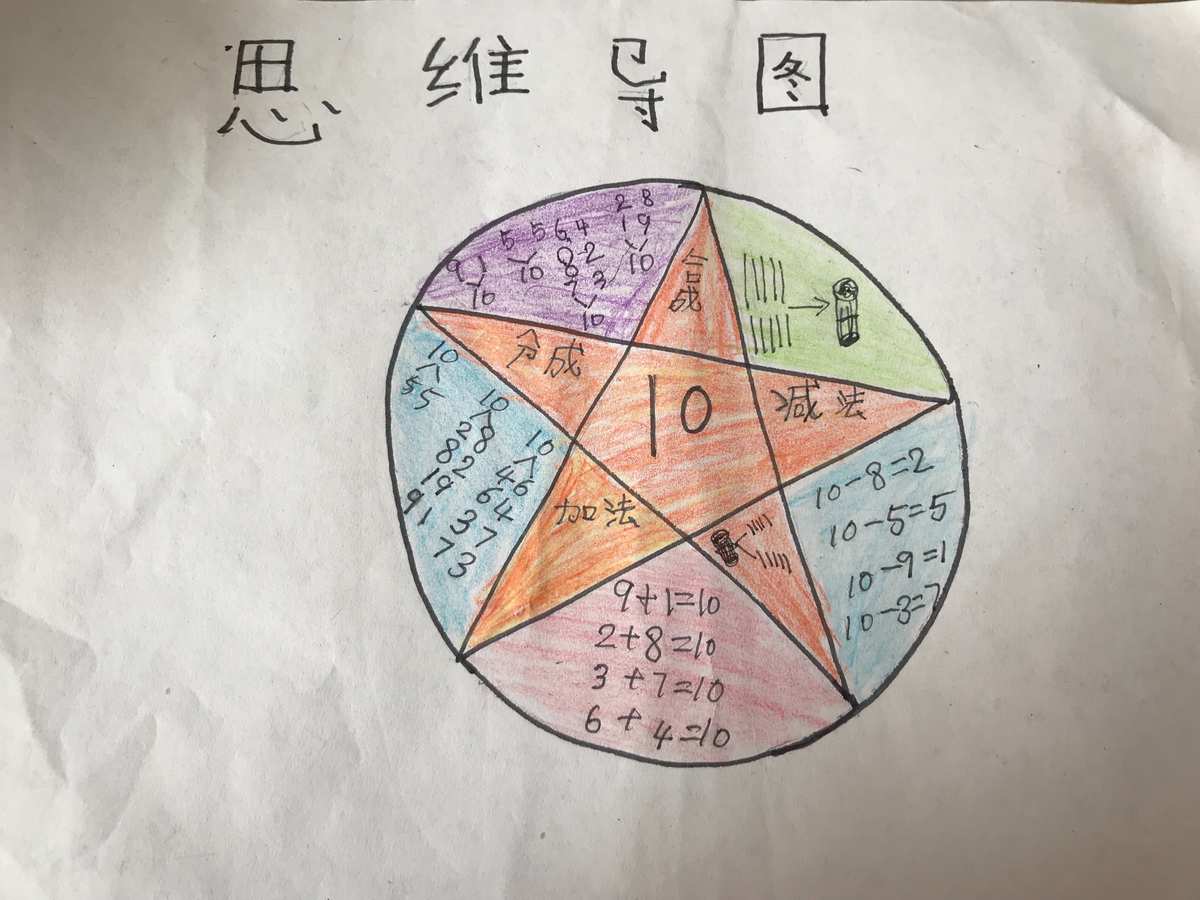 思维导图
2 8
1 9
10
5 5
10
6 4
8 2
7 3
10
9 1
10
合成
分成
10
减法
加法
10
5 5
10
2 8
8 2
1 9
9 1
10
4 6
6 4
3 7
7 3
10-8=2
10-5=5
10-9=1
10-3=7
9+1=10
2+8=10
3+7=10
6+4=10